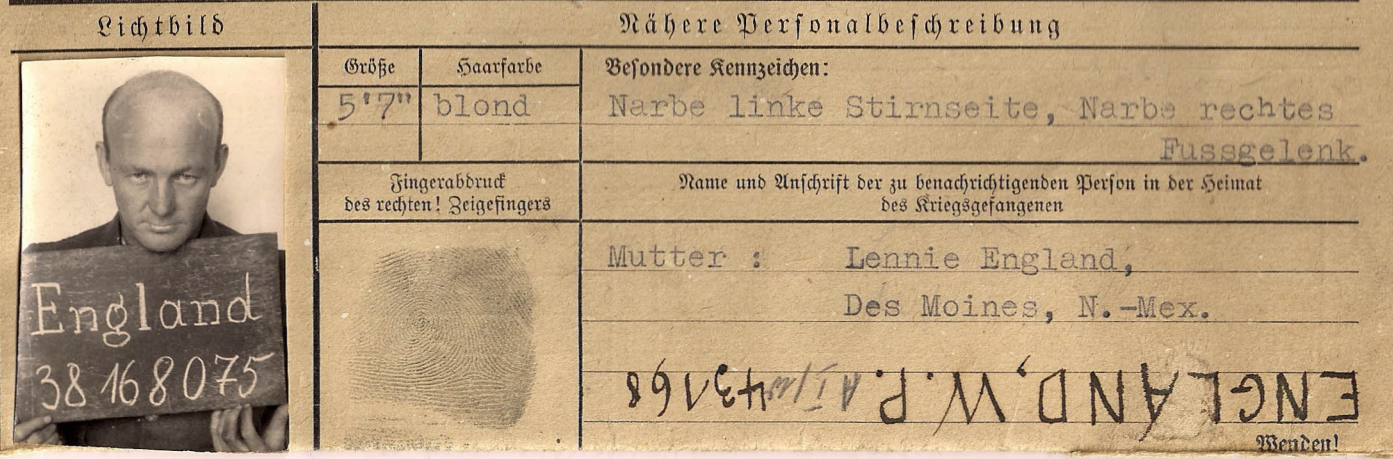 Lichtbild
Nähere Personalbeschreibung
Größe
Haarfarbe
Besondere Kennzeichen:
5'7"
blond
Narbe linke Stirnseite, Narbe rechtes
Fussgelenk.
Fingerabdruck
des rechten! Zeigefingers
Name und Anschrift der zu benachrichtigenden Person in der Heimat
des Kriegsgefangenen
England
38168075
Mutter : Lennie England,
Des Moines, N.-Mex.
ENGLAND, W. P. 43168
Wenden!